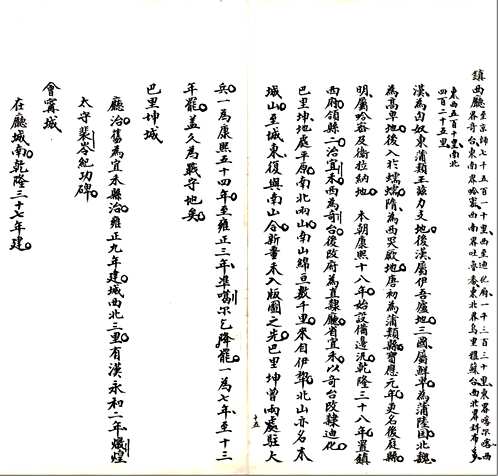 鎮西廳至京師七千五百一十里西至迪化府一千三百三十里東界喀爾喀西
界奇台東南界哈蜜西南界吐魯番東北界烏里雅蘇台西北界科布多
東西五百十里南北
四百二十五里
漢為匈奴東蒲類王茲力支地後漢屬伊吾廬地三國屬鮮卑為蒲陸國北魏
為高車地後入於蠕蠕隋為西突厥地唐初為蒲類縣寶應元年更名後庭縣
明屬哈密及衛拉納地 本朝康熙十八年始設備邊汛乾隆三十八年置鎮
西府領縣二治宜禾西為奇台後改府為直隸廳省宜禾以奇台改隸迪化
巴里坤地處平原南北兩山南山綿亘數千里來自伊犂北山亦名本
城山至城東復與南山合新疆未入版圖之先巴里坤曾兩處駐大
十五
兵一為康熙五十四年至雍正三年準噶尔乞降罷一為七年至十三
年罷蓋久為戰守地矣
巴里坤城
廳治舊為宜禾縣治雍正九年建城西北三里有漢永和二年燉煌
太守裴岑紀功碑
會甯城
在廳城南乾隆三十七年建